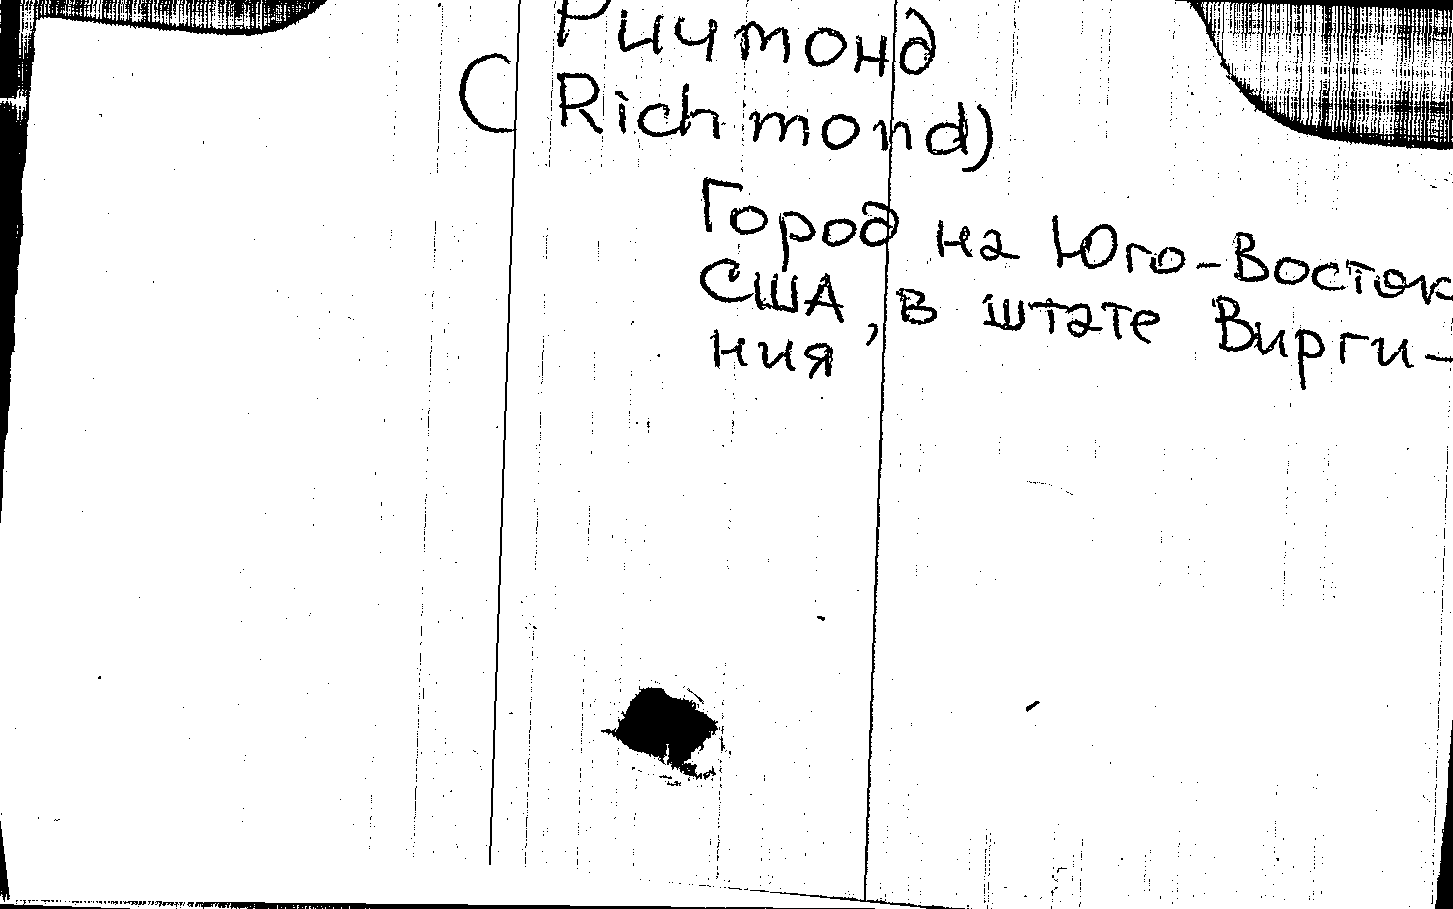 Ричмонд
(Richmond)
Город на Юго-Восток
США, в штате Вирги-
ния